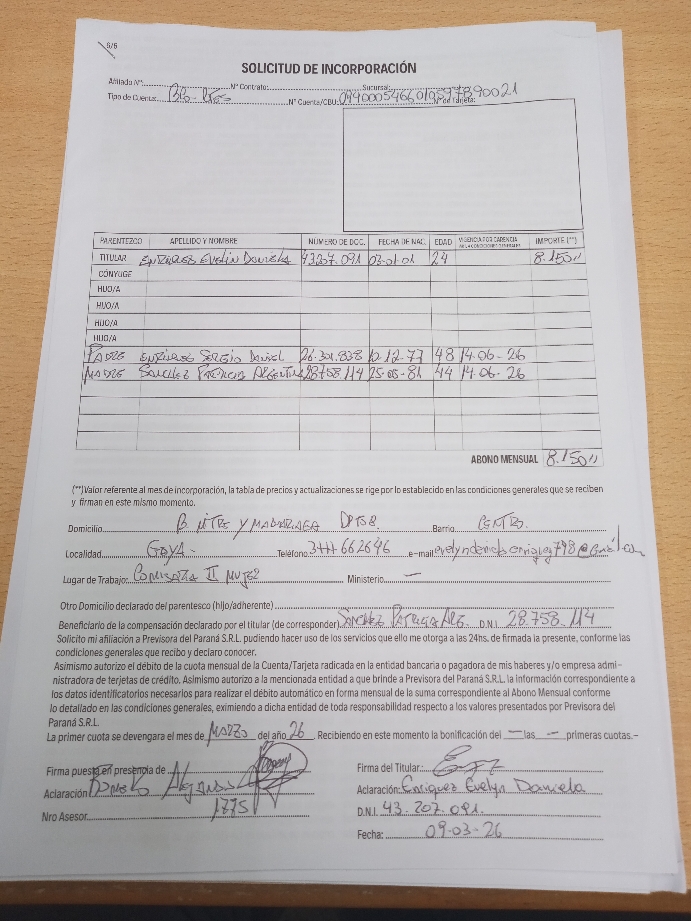 6/6
SOLICITUD DE INCORPORACIÓN
Afiliado N°: N° Contrato: Sucursal:
Tipo de Cuenta: N° Cuenta/CBU: N° de Tarjeta:
PARENTEZCO APELLIDO Y NOMBRE NUMERO DE DOC. FECHA DE NAC. EDAD VIGENCIA POR CARENCIA IMPORTE (**)
TITULAR Enriquez Evelin Daniela 43207.091 03-01-01 24 8.150"
CÓNYUGE
HIJO/A
HIJO/A
HIJO/A
HIJO/A
PADRE Enriquez Sergio Daniel 26.301.838 10-12-77 48 14-06-26
MADRE Sanchez Patricia Argentina 28758.114 25-05-81 44 14-06-26
ABONO MENSUAL 8.150"
(**)Valor referente al mes de incorporación, la tabla de precios y actualizaciones se rige por lo establecido en las condiciones generales que se reciben
y firman en este mismo momento.
Domicilio B. MITRE Y MADARIAGA DPTO8 Barrio CENTRO.
Localidad GOYA- Teléfono 3777 662646 e-mail
Lugar de Trabajo: COMISARIA II MUJER Ministerio: —
Otro Domicilio declarado del parentesco (hijo/adherente)
Beneficiario de la compensación declarado por el titular (de corresponder) SANCHEZ PATRICIA ARG. D.N.I. 28.758.114
Solicito mi afiliación a Previsora del Paraná S.R.L. pudiendo hacer uso de los servicios que ello me otorga a las 24hs. de firmada la presente, conforme las
condiciones generales que recibo y declaro conocer.
Asimismo autorizo el débito de la cuota mensual de la Cuenta/Tarjeta radicada en la entidad bancaria o pagadora de mis haberes y/o empresa admi-
nistradora de terjetas de crédito. Asimismo autorizo a la mencionada entidad a que brinde a Previsora del Paraná S.R.L. la información correspondiente a
los datos identificatorios necesarios para realizar el débito automático en forma mensual de la suma correspondiente al Abono Mensual conforme
lo detallado en las condiciones generales, eximiendo a dicha entidad de toda responsabilidad respecto a los valores presentados por Previsora del
Paraná S.R.L.
La primer cuota se devengara el mes de MARZO del año 26. Recibiendo en este momento la bonificación del — las — primeras cuotas.-
Firma puesta en presencia de Firma del Titular:
Aclaración Aclaración: Enriquez Evelyn Daniela
Nro Asesor 1775 D.N.I. 43.207.091.
Fecha: 09-03-26